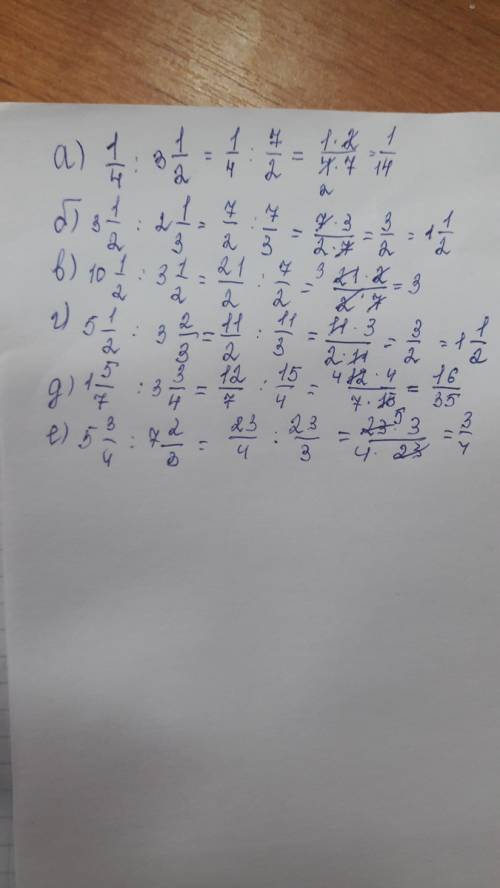 а) 1/4 : 3 1/2 = 1/4 : 7/2 = 1·2/4·7 2 = 1/14
б) 3 1/2 : 2 1/3 = 7/2 : 7/3 = 7·3/2·7 = 3/2 = 1 1/2
в) 10 1/2 : 3 1/2 = 21/2 : 7/2 = 3 21·2/2·7 = 3
г) 5 1/2 : 3 2/3 = 11/2 : 11/3 = 11·3/2·11 = 3/2 = 1 1/2
д) 1 5/7 : 3 3/4 = 12/7 : 15/4 = 4 12·4/7·15 = 16/35
е) 5 3/4 : 7 2/3 = 23/4 : 23/3 = 23·3/4·23 = 3/4